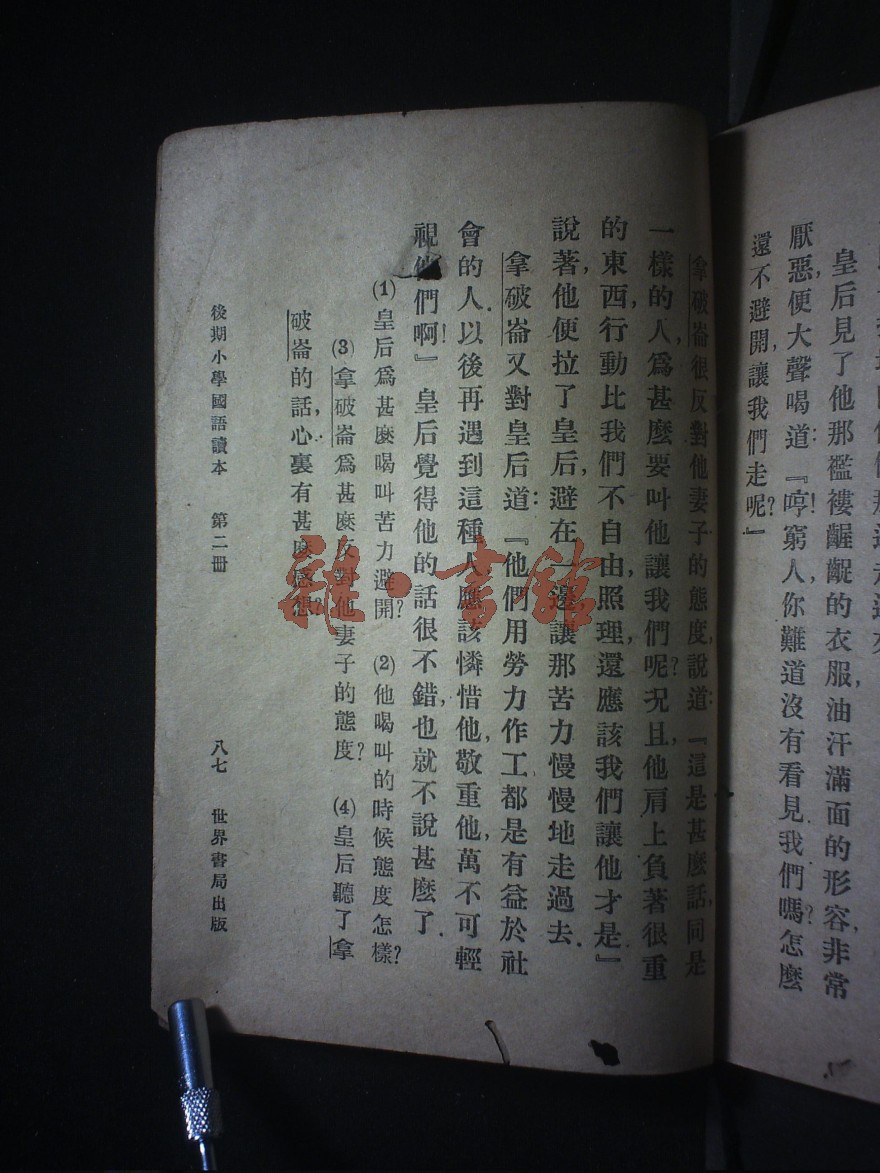 皇后見了他那襤褸齷齪的衣服，油汗滿面的形容，非常
厭惡，便大聲喝道：『哼！窮人，你難道沒有看見我們嗎？怎麼
還不避開，讓我們走呢？』
拿破崙很反對他妻子的態度，說道：『這是甚麼話，同是
一樣的人，爲甚麼要叫他讓我們呢？況且，他肩上負著很重
的東西，行動比我們不自由，照理，還應該我們讓他才是。』
說著，他便拉了皇后，避在一邊，讓那苦力慢慢地走過去。
拿破崙又對皇后道：『他們用勞力作工，都是有益於社
會的人。以後再遇到這種人，應該憐惜他，敬重他，萬不可輕
視他們啊！』皇后覺得他的話很不錯，也就不說甚麼了。
(1)皇后爲甚麼喝叫苦力避開？ (2)他喝叫的時候態度怎樣？
(3)拿破崙爲甚麼反對他妻子的態度？ (4)皇后聽了拿
破崙的話，心裏有甚麼感想？
後期小學國語讀本 第二冊 八七 世界書局出版
雜·書館